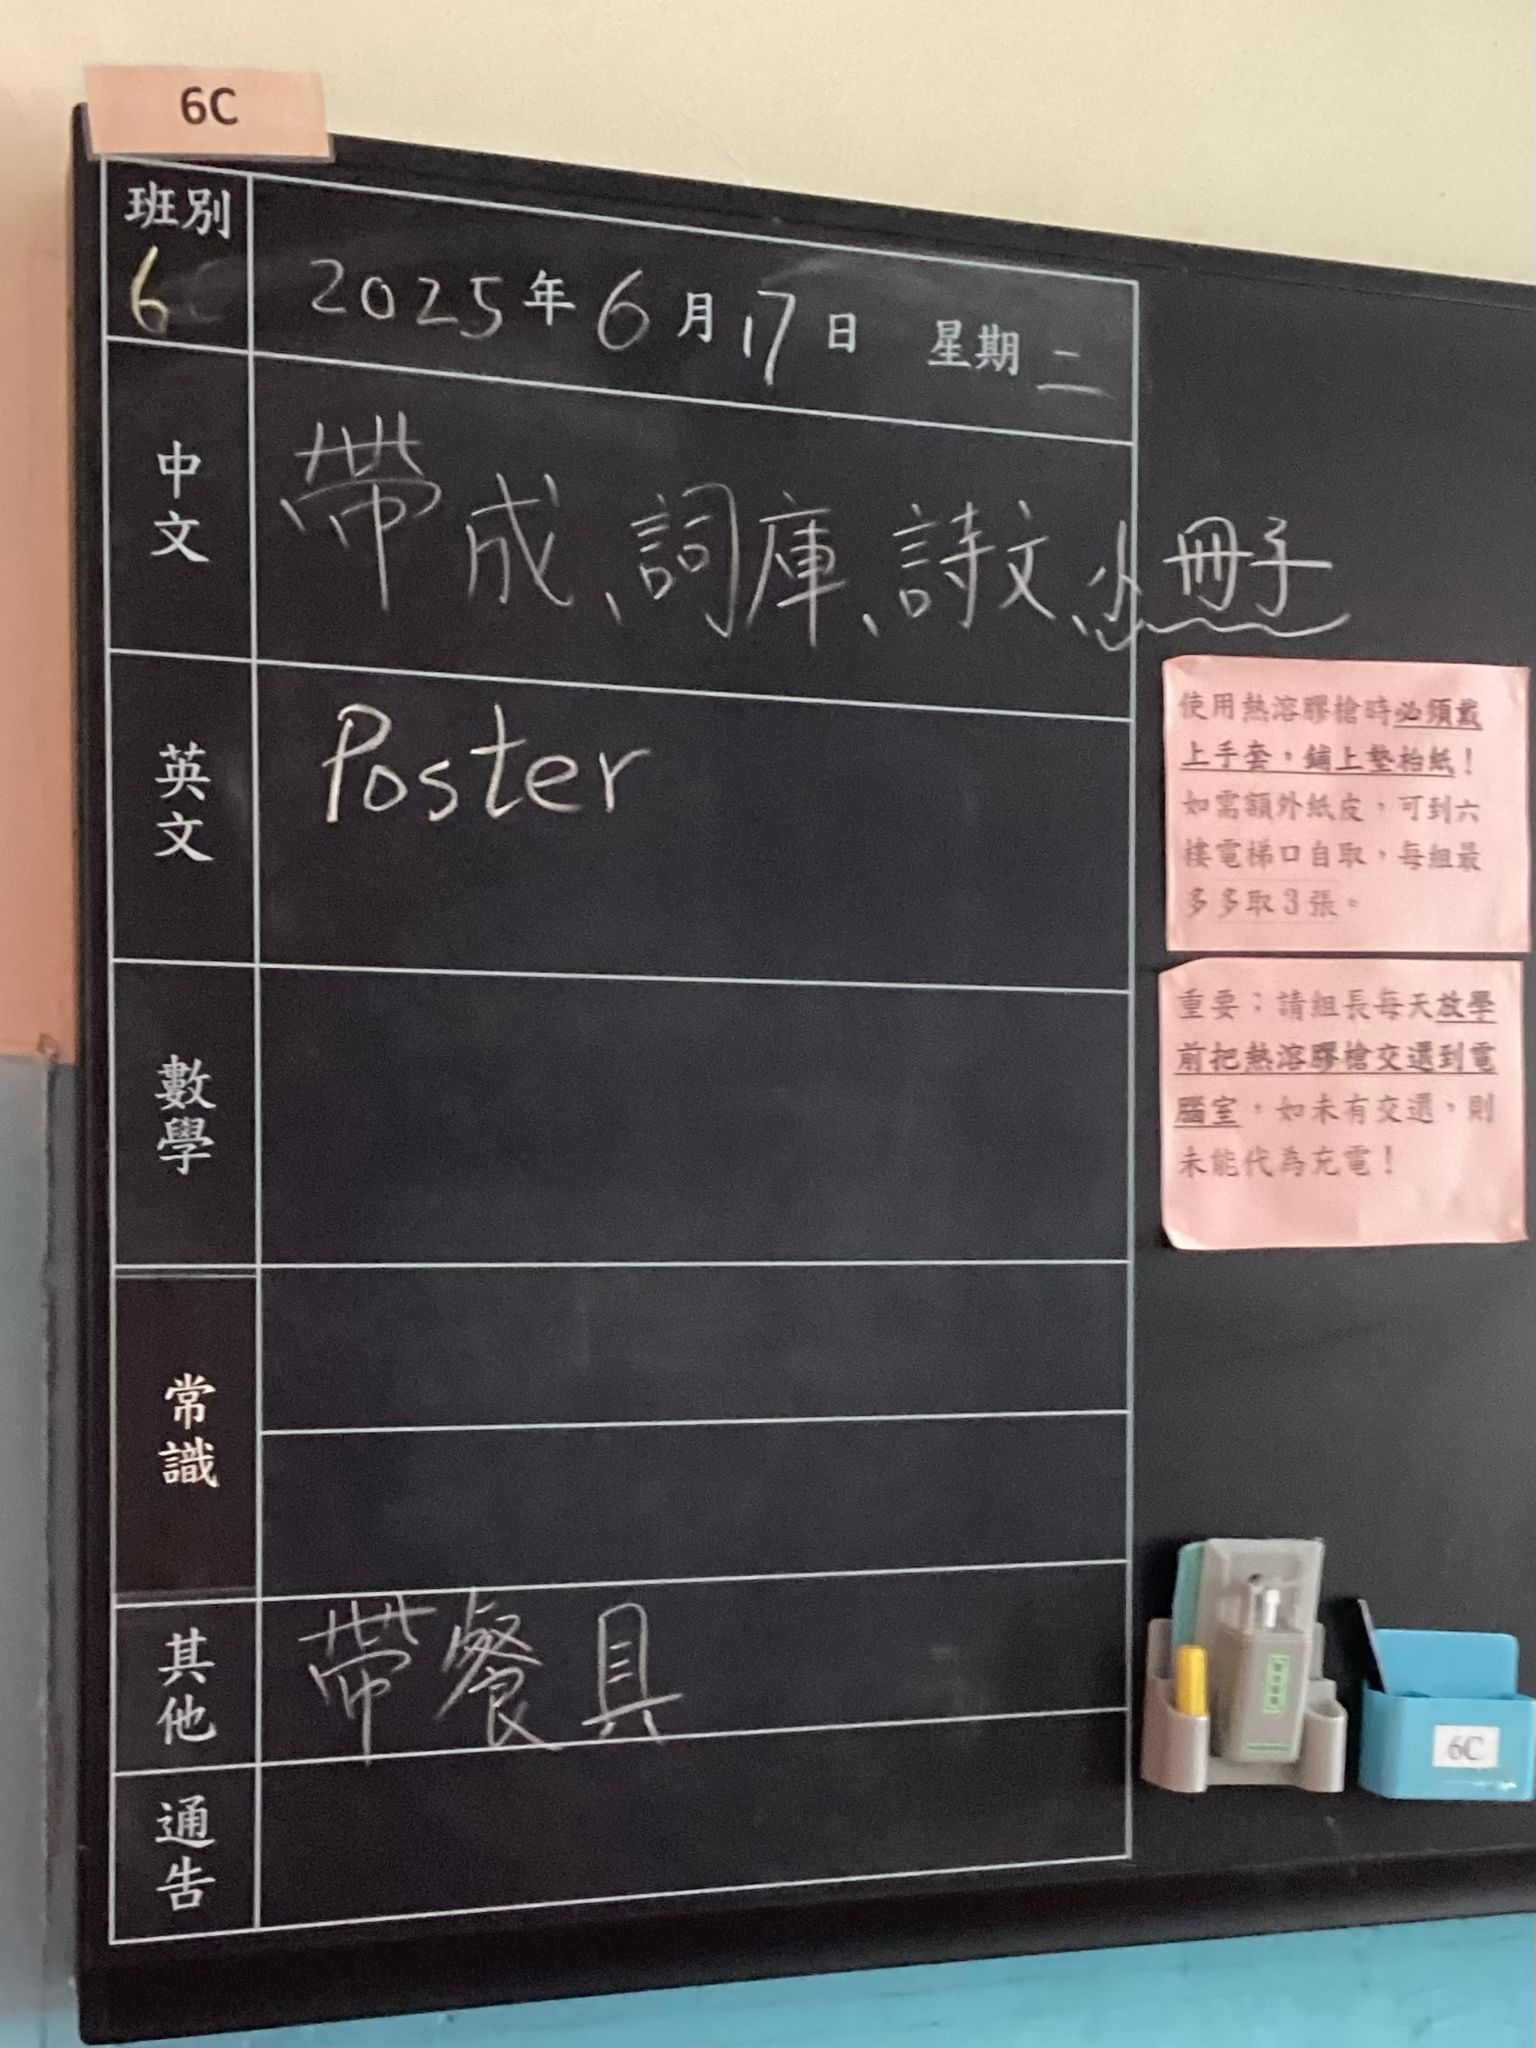 6C
班別
6C
2025年6月17日 星期二
中文
帶成、詞庫、詩文、小冊子
英文
Poster
數學
常識
其他
帶餐具
通告
使用熱溶膠槍時必須戴
上手套，鋪上墊枱紙！
如需額外紙皮，可到六
樓電梯口自取，每組最
多多取3張。
重要：請組長每天放學
前把熱溶膠槍交還到電
腦室，如未有交還，則
未能代為充電！
6C